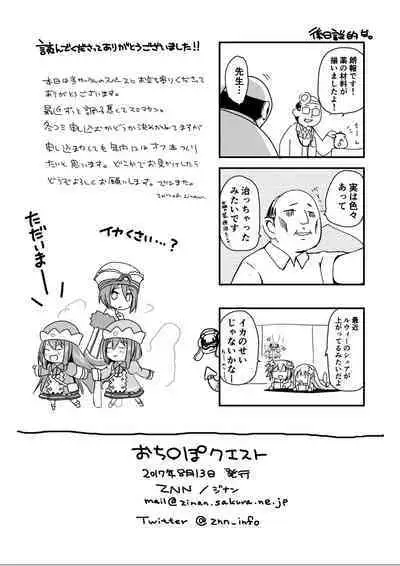 後日談的な。
朗報です！
薬の材料が
揃いましたよ！
先生…
実は色々
あって
治っちゃった
みたいです
最近
ルウィーのシェアが
上がってるみたいだよ
イカのせい
じゃないかな！
読んでくださってありがとうございました!!
本日は
ありがとうございます。
最近ずっと調子悪くてスミマセン。
冬コミ申し込むかどうか決めかねてますが
申し込まなくても年内には
たいと思います。どこかでお見かけしたら
どうぞよろしくお願いします。
イカくさい…？
ただいまー
おち〇ぽクエスト
2017年8月13日 発行
ZNN / ジナン
mail@zinan.sakura.ne.jp
Twitter @znn_info